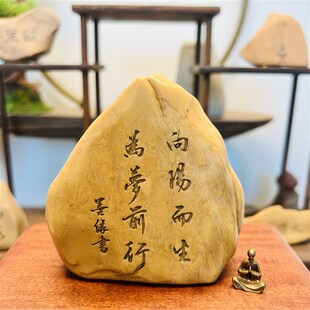 向陽而生
為夢前行
善缘書